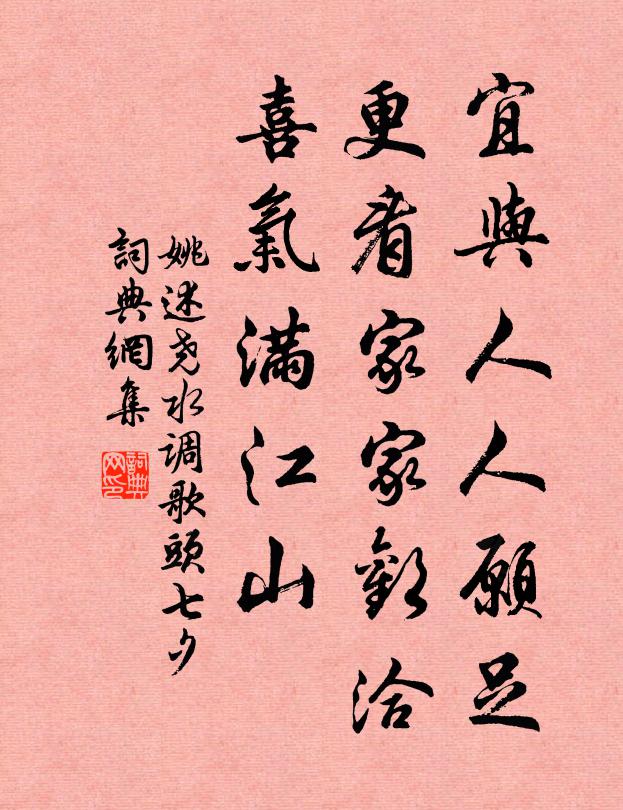 宜與人人願足
更看家家歡洽
喜氣滿江山
姚述尧水调歌頭七夕
詞典網集
詞典网印